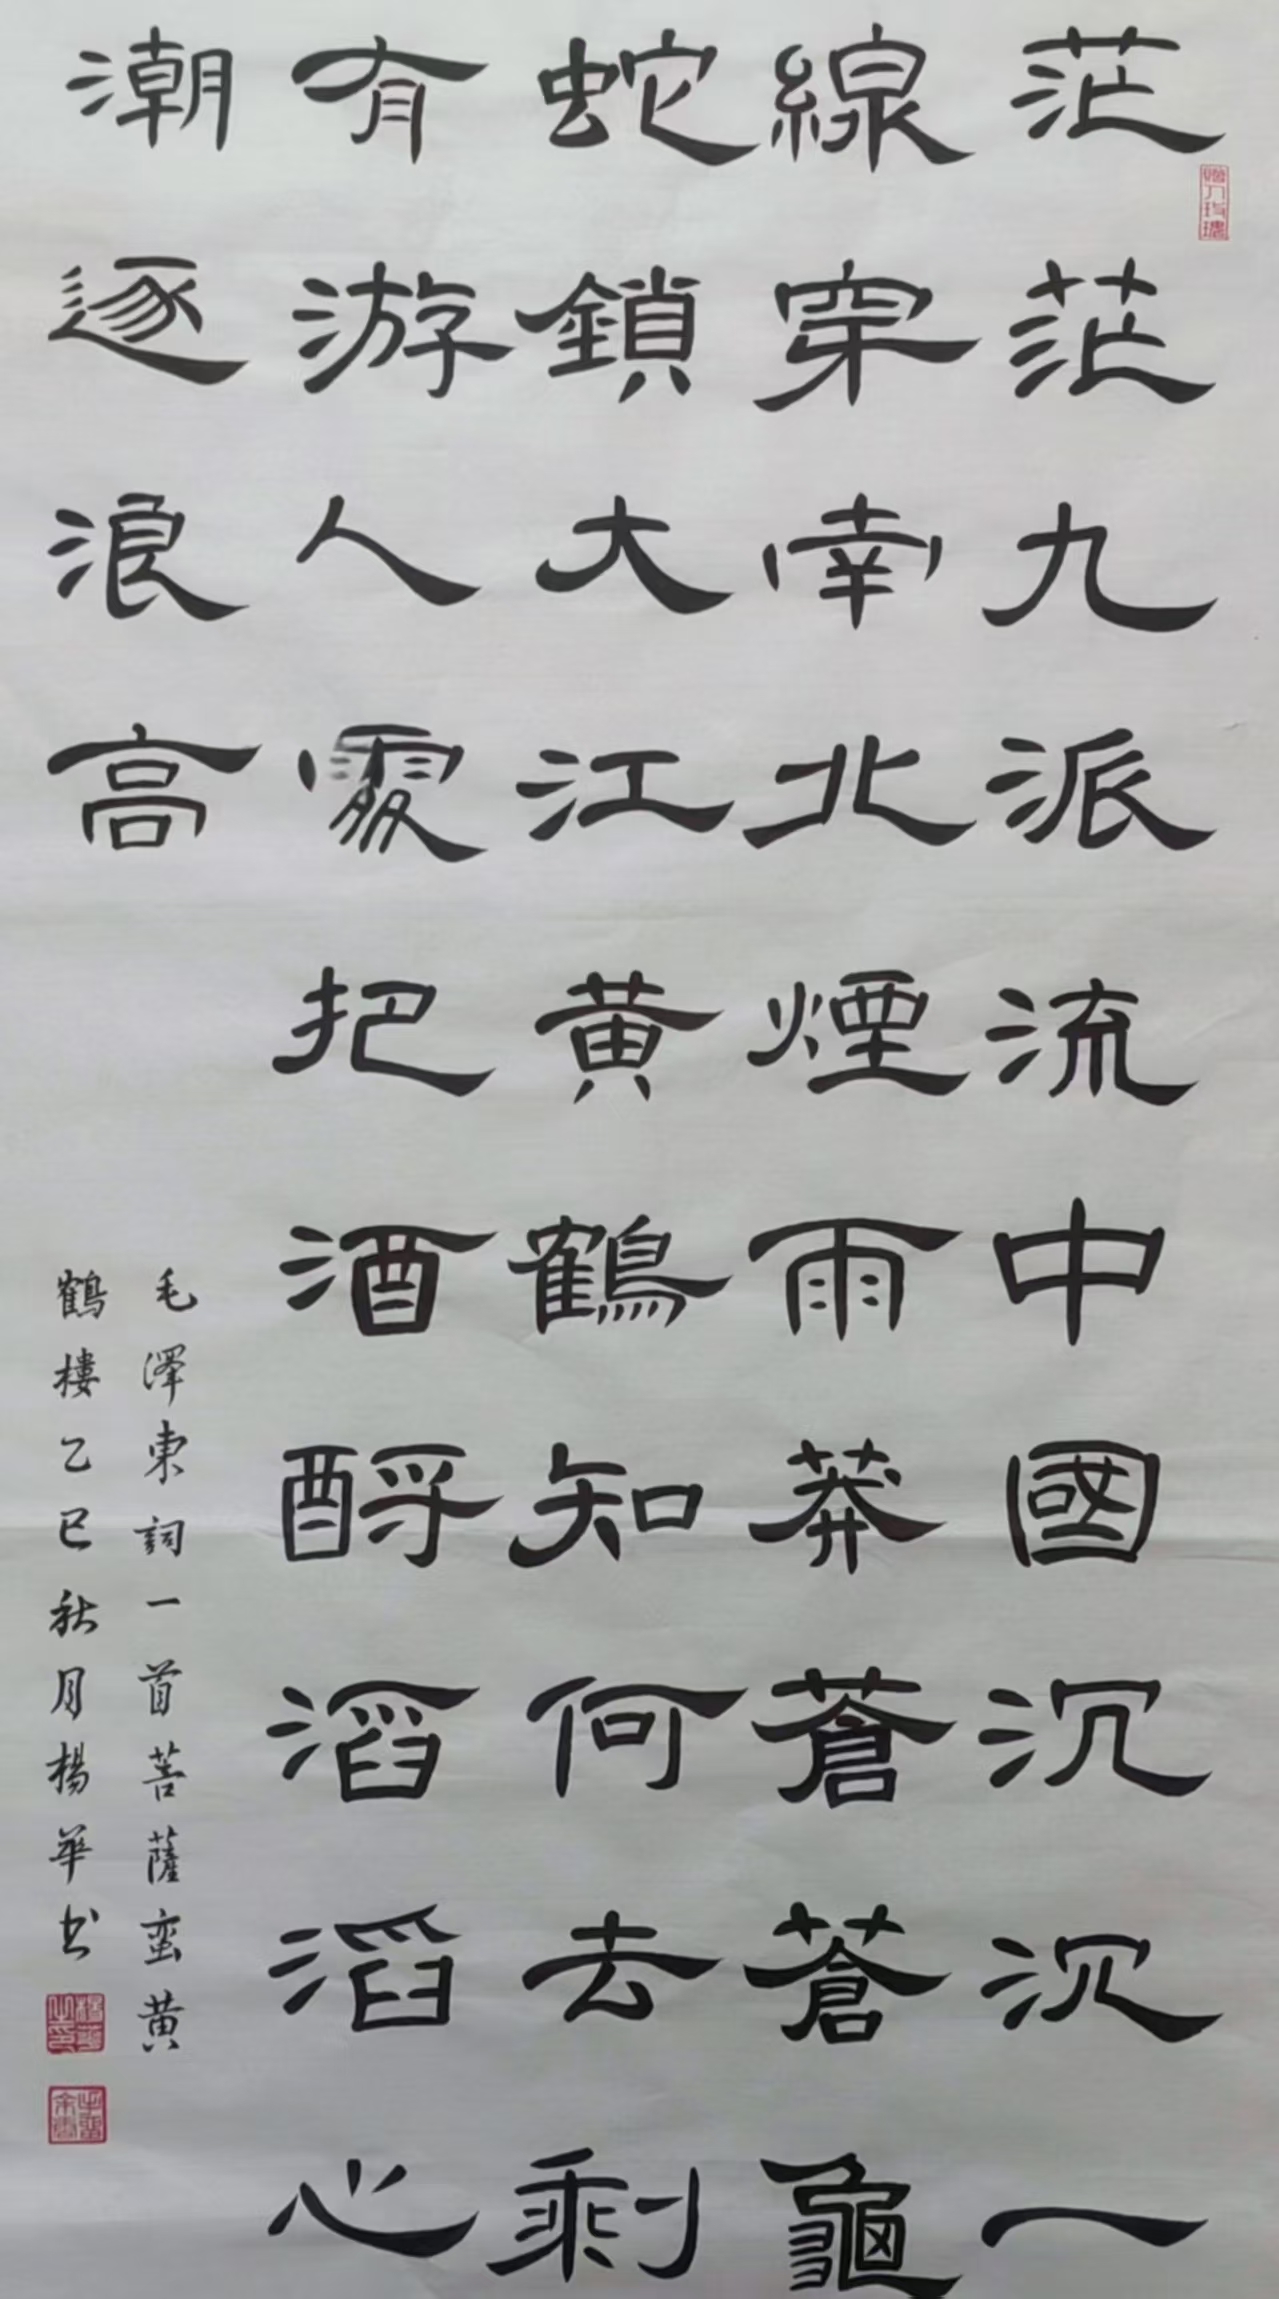 茫茫九派流中國沉沉一
線穿南北煙雨莽蒼蒼龜
蛇鎖大江黄鶴知何去剩
有游人處把酒酹滔滔心
潮逐浪高
毛澤東詞一首菩薩蛮黄
鶴樓乙巳秋月楊華书
楊華之印